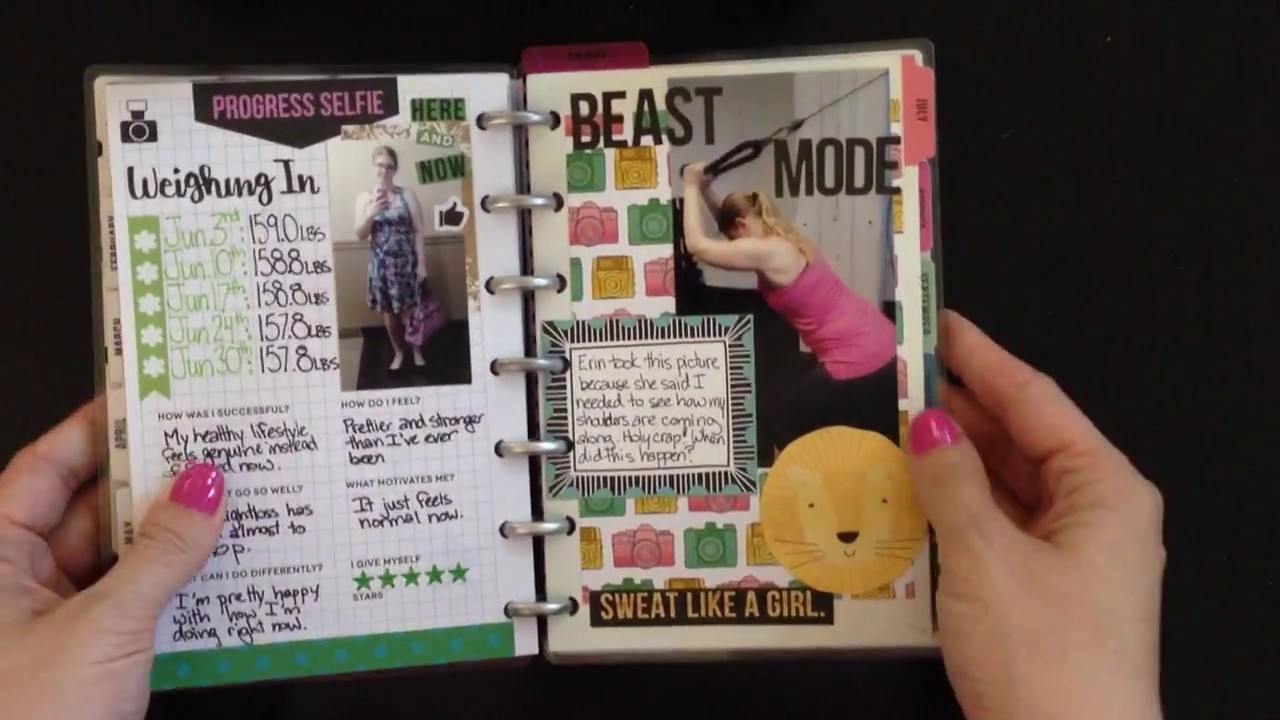 PROGRESS SELFIE
HERE
AND
NOW
Weighing In
Jun 3rd: 159.0LBS
Jun 10th: 158.8LBS
Jun 17th: 158.8LBS
Jun 24th: 157.8LBS
Jun 30th: 157.8LBS
HOW WAS I SUCCESSFUL?
My healthy lifestyle
feels genuine instead
now.
GO SO WELL?
has
almost to
CAN I DO DIFFERENTLY?
I'm pretty happy
with how I'm
doing right now.
HOW DO I FEEL?
Prettier and stronger
than I've ever
been
WHAT MOTIVATES ME?
It just feels
normal now.
I GIVE MYSELF
STARS
FEBRUARY
MARCH
APRIL
MAY
BEAST
MODE
Erin took this picture
because she said I
needed to see how my
shoulders are coming
along. Holy crap! When
did this happen?
SWEAT LIKE A GIRL.
JULY